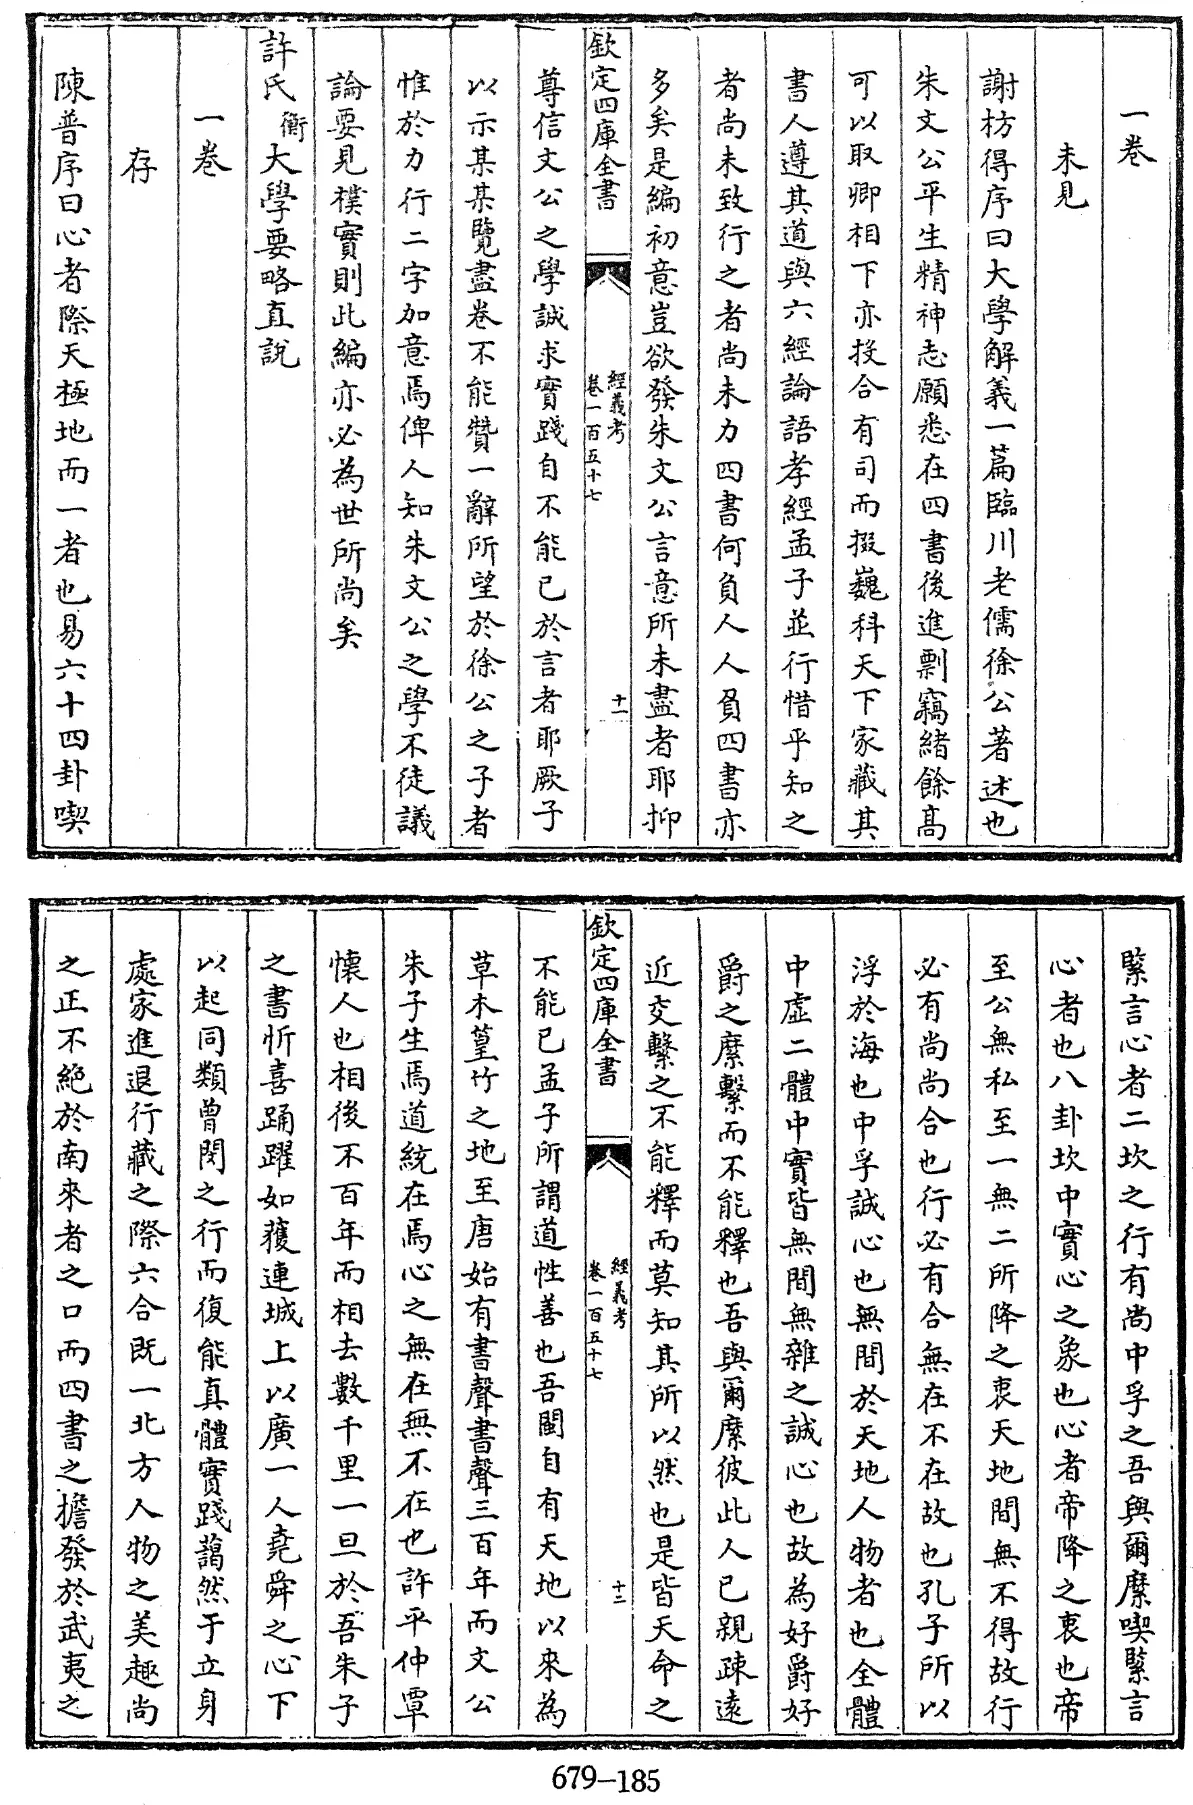 一卷
未見
謝枋得序曰大學解義一篇臨川老儒徐公著述也
朱文公平生精神志願悉在四書後進剽竊緒餘髙
可以取卿相下亦投合有司而掇巍科天下家藏其
書人遵其道與六經論語孝經孟子並行惜乎知之
者尚未致行之者尚未力四書何負人人負四書亦
多矣是編初意豈欲發朱文公言意所未盡者耶抑
欽定四庫全書
經義考
卷一百五十七
十一
尊信文公之學誠求實踐自不能已於言者耶厥子
以示某某覽盡卷不能贊一辭所望於徐公之子者
惟於力行二字加意焉俾人知朱文公之學不徒議
論要見樸實則此編亦必為世所尚矣
許氏衡大學要略直說
一卷
存
陳普序曰心者際天極地而一者也易六十四卦喫
緊言心者二坎之行有尚中孚之吾與爾縻喫緊言
心者也八卦坎中實心之象也心者帝降之衷也帝
至公無私至一無二所降之衷天地間無不得故行
必有尚尚合也行必有合無在不在故也孔子所以
浮於海也中孚誠心也無間於天地人物者也全體
中虛二體中實皆無間無雜之誠心也故為好爵好
爵之縻繫而不能釋也吾與爾縻彼此人已親疎遠
近交繫之不能釋而莫知其所以然也是皆天命之
欽定四庫全書
經義考
卷一百五十七
十二
不能已孟子所謂道性善也吾閩自有天地以來為
草木篁竹之地至唐始有書聲書聲三百年而文公
朱子生焉道統在焉心之無在無不在也許平仲覃
懷人也相後不百年而相去數千里一旦於吾朱子
之書忻喜踊躍如獲連城上以廣一人堯舜之心下
以起同類曾閔之行而復能真體實踐藹然于立身
處家進退行藏之際六合既一北方人物之美趣尚
之正不絕於南來者之口而四書之擔發於武夷之
679-185